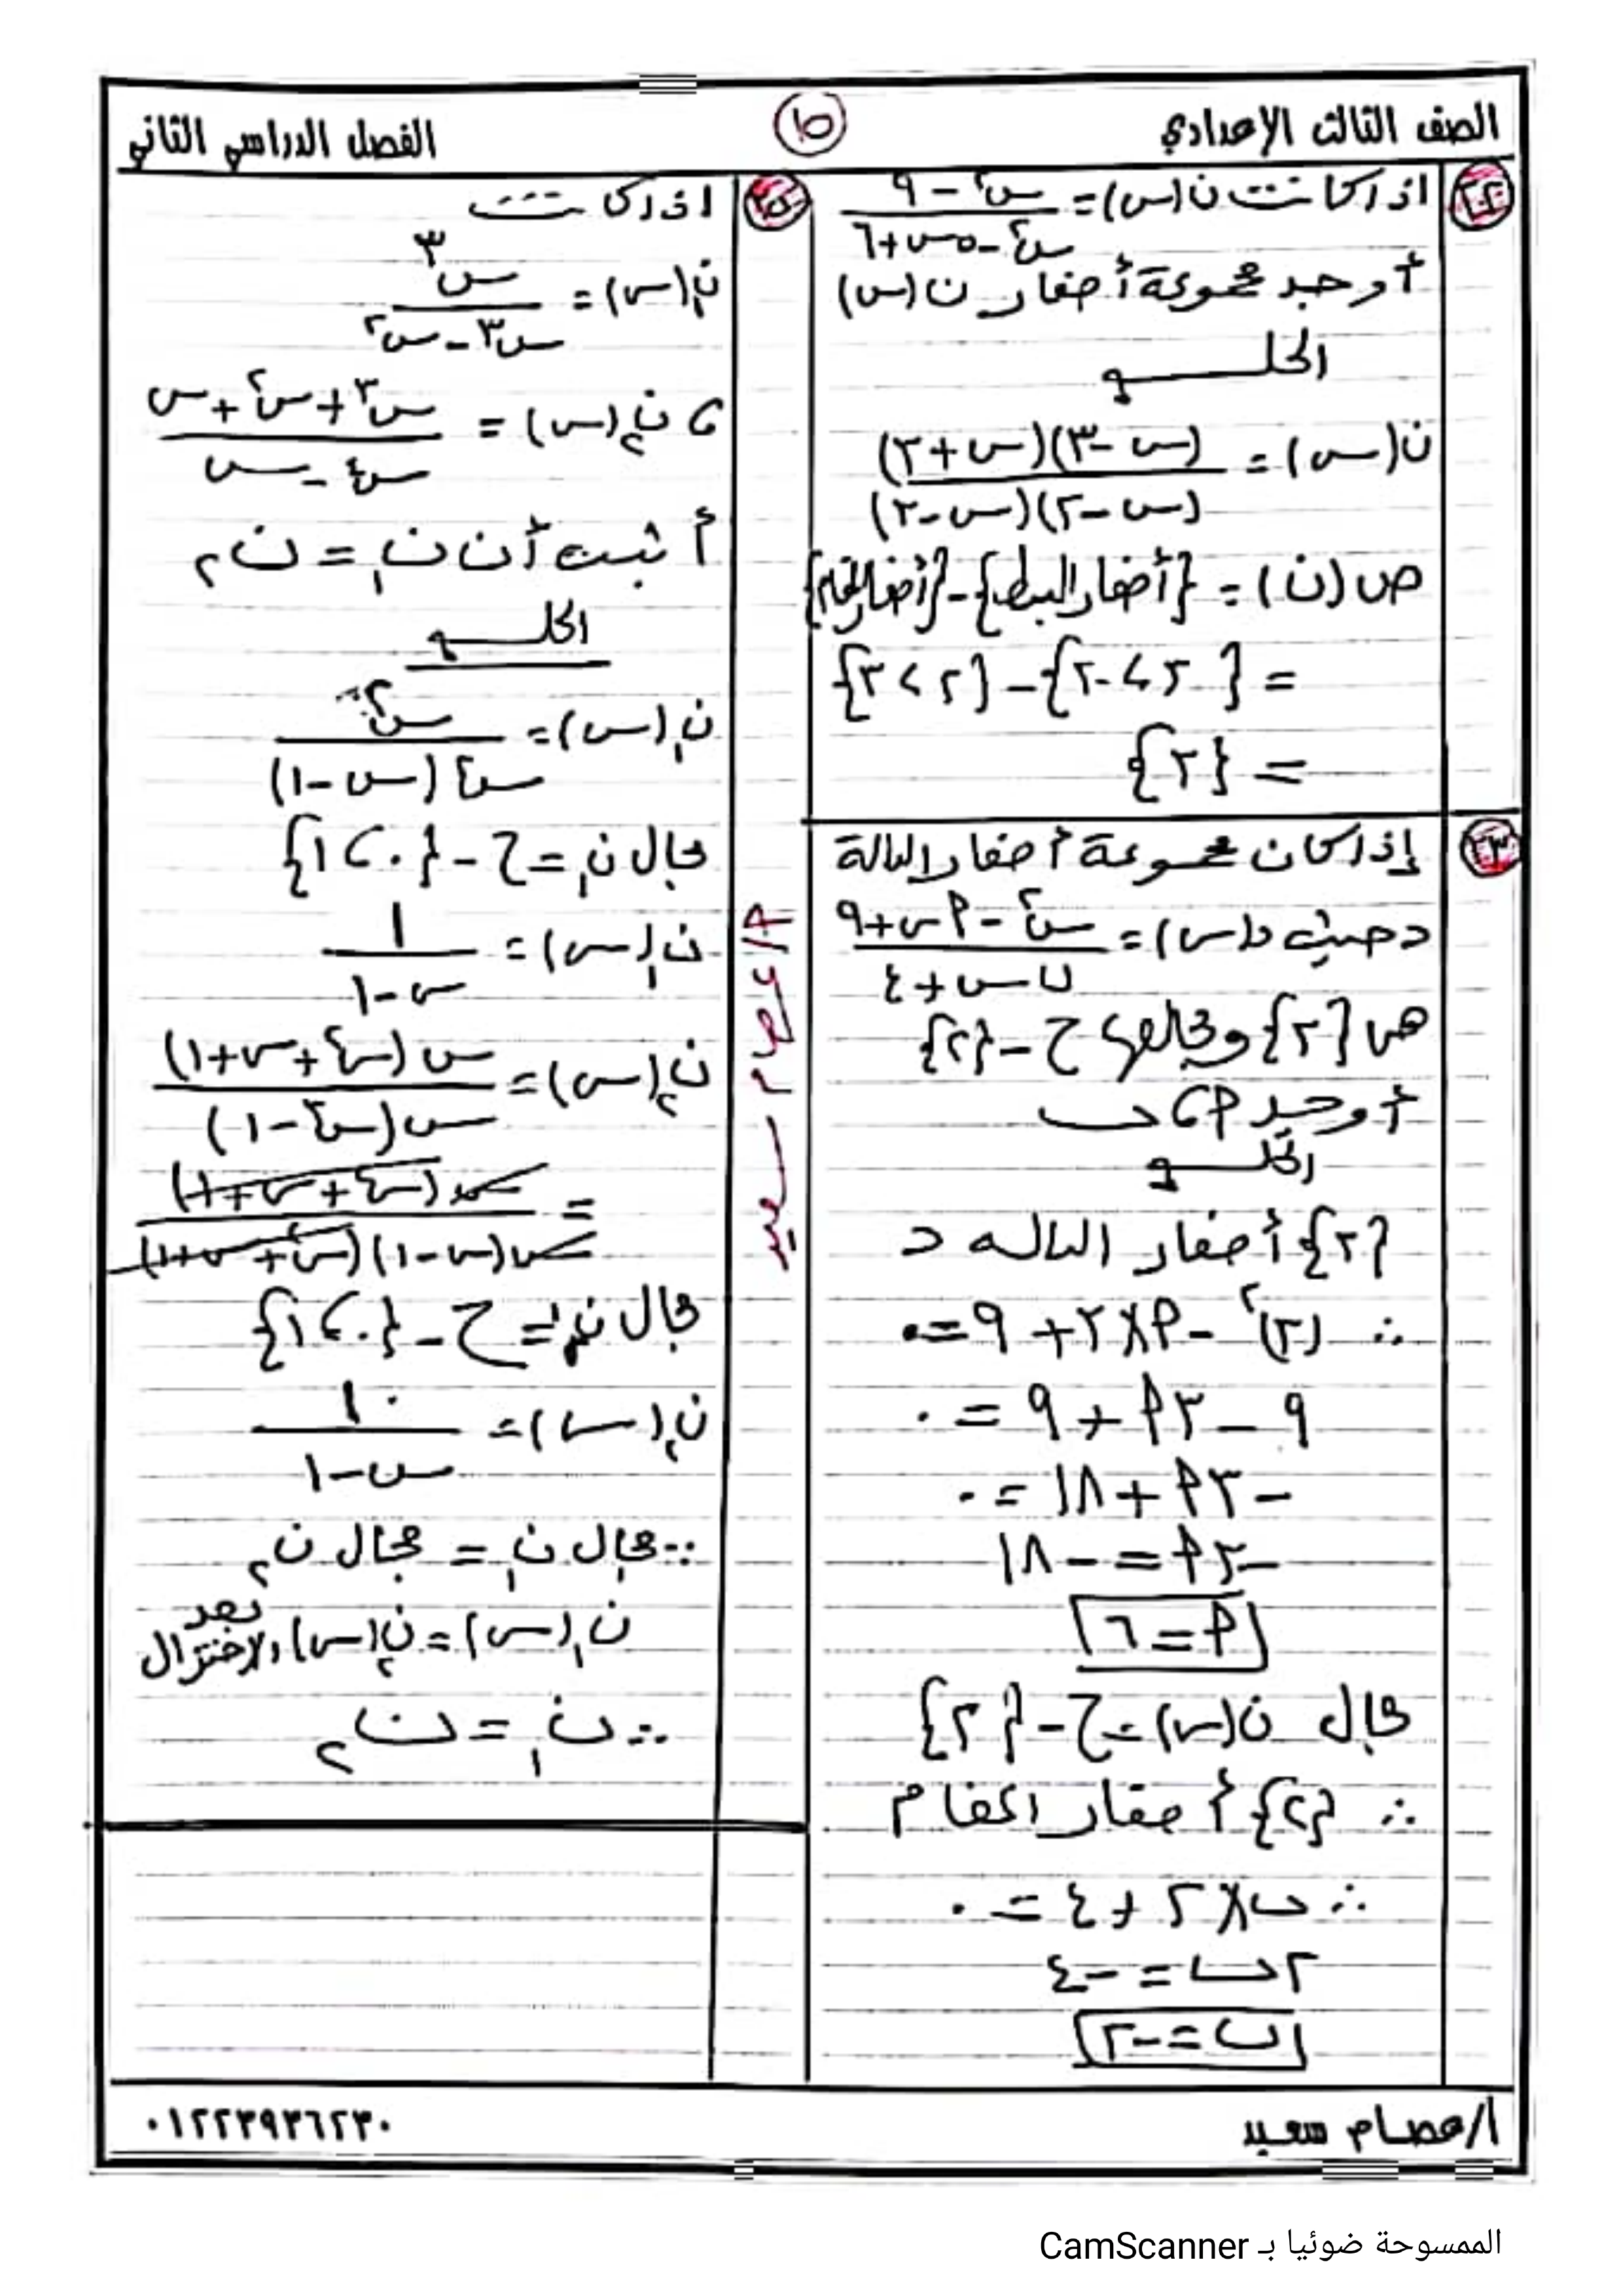 الصف الثالث الإعدادي
١٥
الفصل الدراسي الثاني
٢٢
اذا كانت ن(س) = (س٢ - ٩) / (س٢ - ٥س + ٦)
أوجد مجموعة أصفار ن(س)
الحل
ن(س) = (س - ٣)(س + ٣) / (س - ٢)(س - ٣)
ص(ن) = {أصفار البسط} - {أصفار المقام}
= {٣، -٣} - {٢، ٣}
= {٣}
٢٣
إذا كان مجموعة أصفار الدالة
د حيث د(س) = (س٢ - أس + ٩) / (ب س + ٤)
هى {٣} ومجالها ح - {٢}
أوجد أ، ب
الحل
{٣} أصفار الداله د
∴ (٣)٢ - أ×٣ + ٩ = ٠
٩ - ٣أ + ٩ = ٠
-٣أ + ١٨ = ٠
-٣أ = -١٨
أ = ٦
مجال ن(س) = ح - {٢}
∴ {٢} أصفار المقام
∴ ب×٢ + ٤ = ٠
٢ب = -٤
ب = -٢
اذا كانت
ن١(س) = س٣ / (س٣ - س٢)
، ن٢(س) = (س٣ + س٢ + س) / (س٤ - س)
أثبت أن ن١ = ن٢
الحل
ن١(س) = س٣ / س٢(س - ١)
مجال ن١ = ح - {٠، ١}
ن١(س) = ١ / (س - ١)
ن٢(س) = س(س٢ + س + ١) / س(س٣ - ١)
= س(س٢ + س + ١) / س(س - ١)(س٢ + س + ١)
مجال ن٢ = ح - {٠، ١}
ن٢(س) = ١ / (س - ١)
∵ مجال ن١ = مجال ن٢
ن١(س) = ن٢(س) بعد الاختزال
∴ ن١ = ن٢
أ/ عصام سعيد
أ/عصام سعيد
٠١٢٢٣٩٣٦٢٣٠
الممسوحة ضوئيا بـ CamScanner